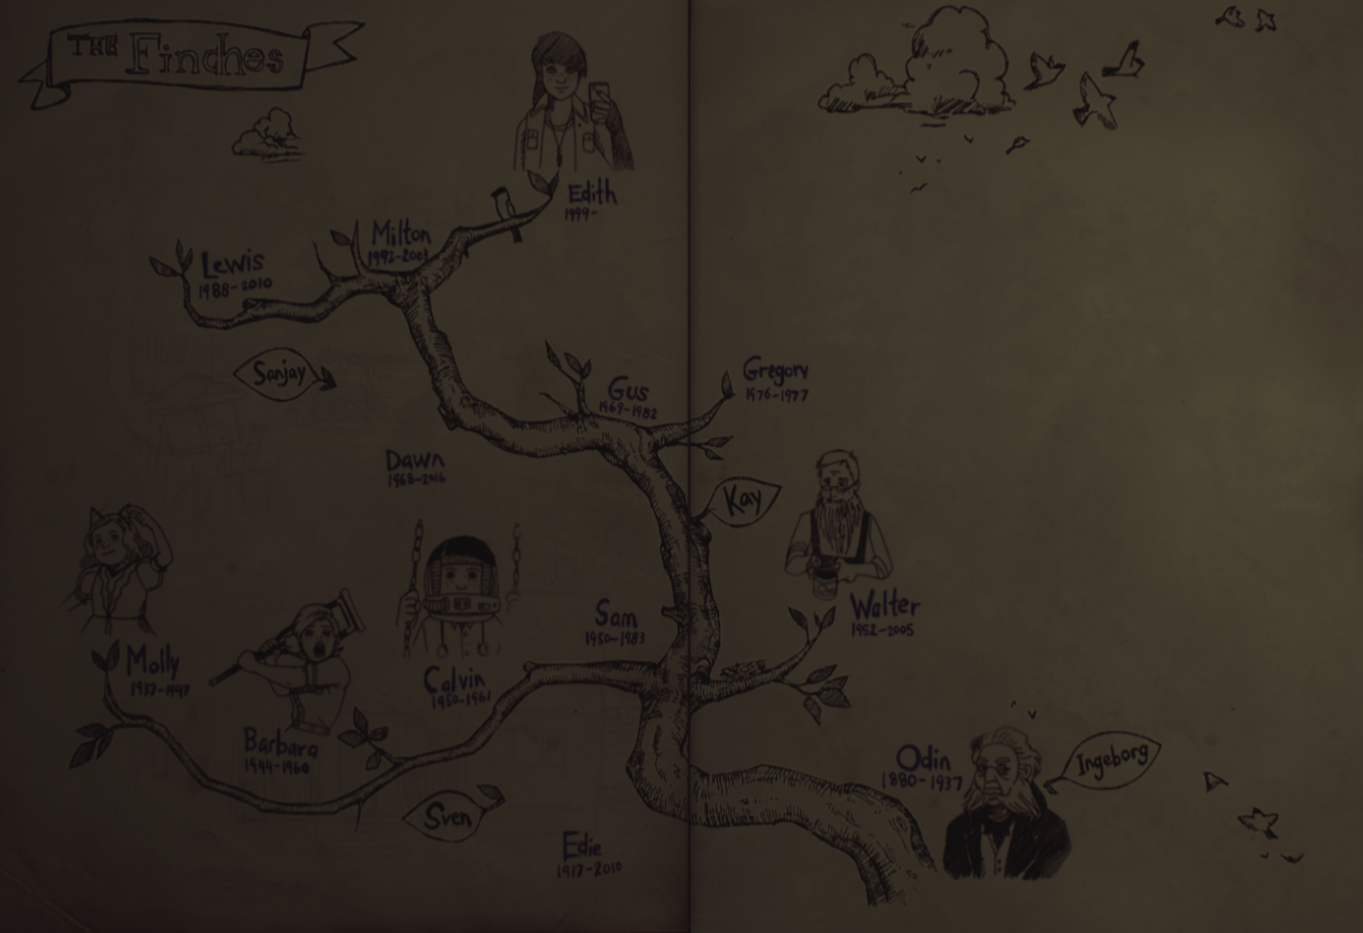 THE Finches
Edith
1999-
Milton
1992-2003
Lewis
1988-2010
Sanjay
Gus
1969-1982
Gregory
1976-1977
Dawn
1968-2016
Kay
Walter
1952-2005
Sam
1950-1983
Calvin
1950-1961
Molly
1937-1947
Barbara
1944-1960
Sven
Edie
1917-2010
Odin
1880-1937
Ingeborg